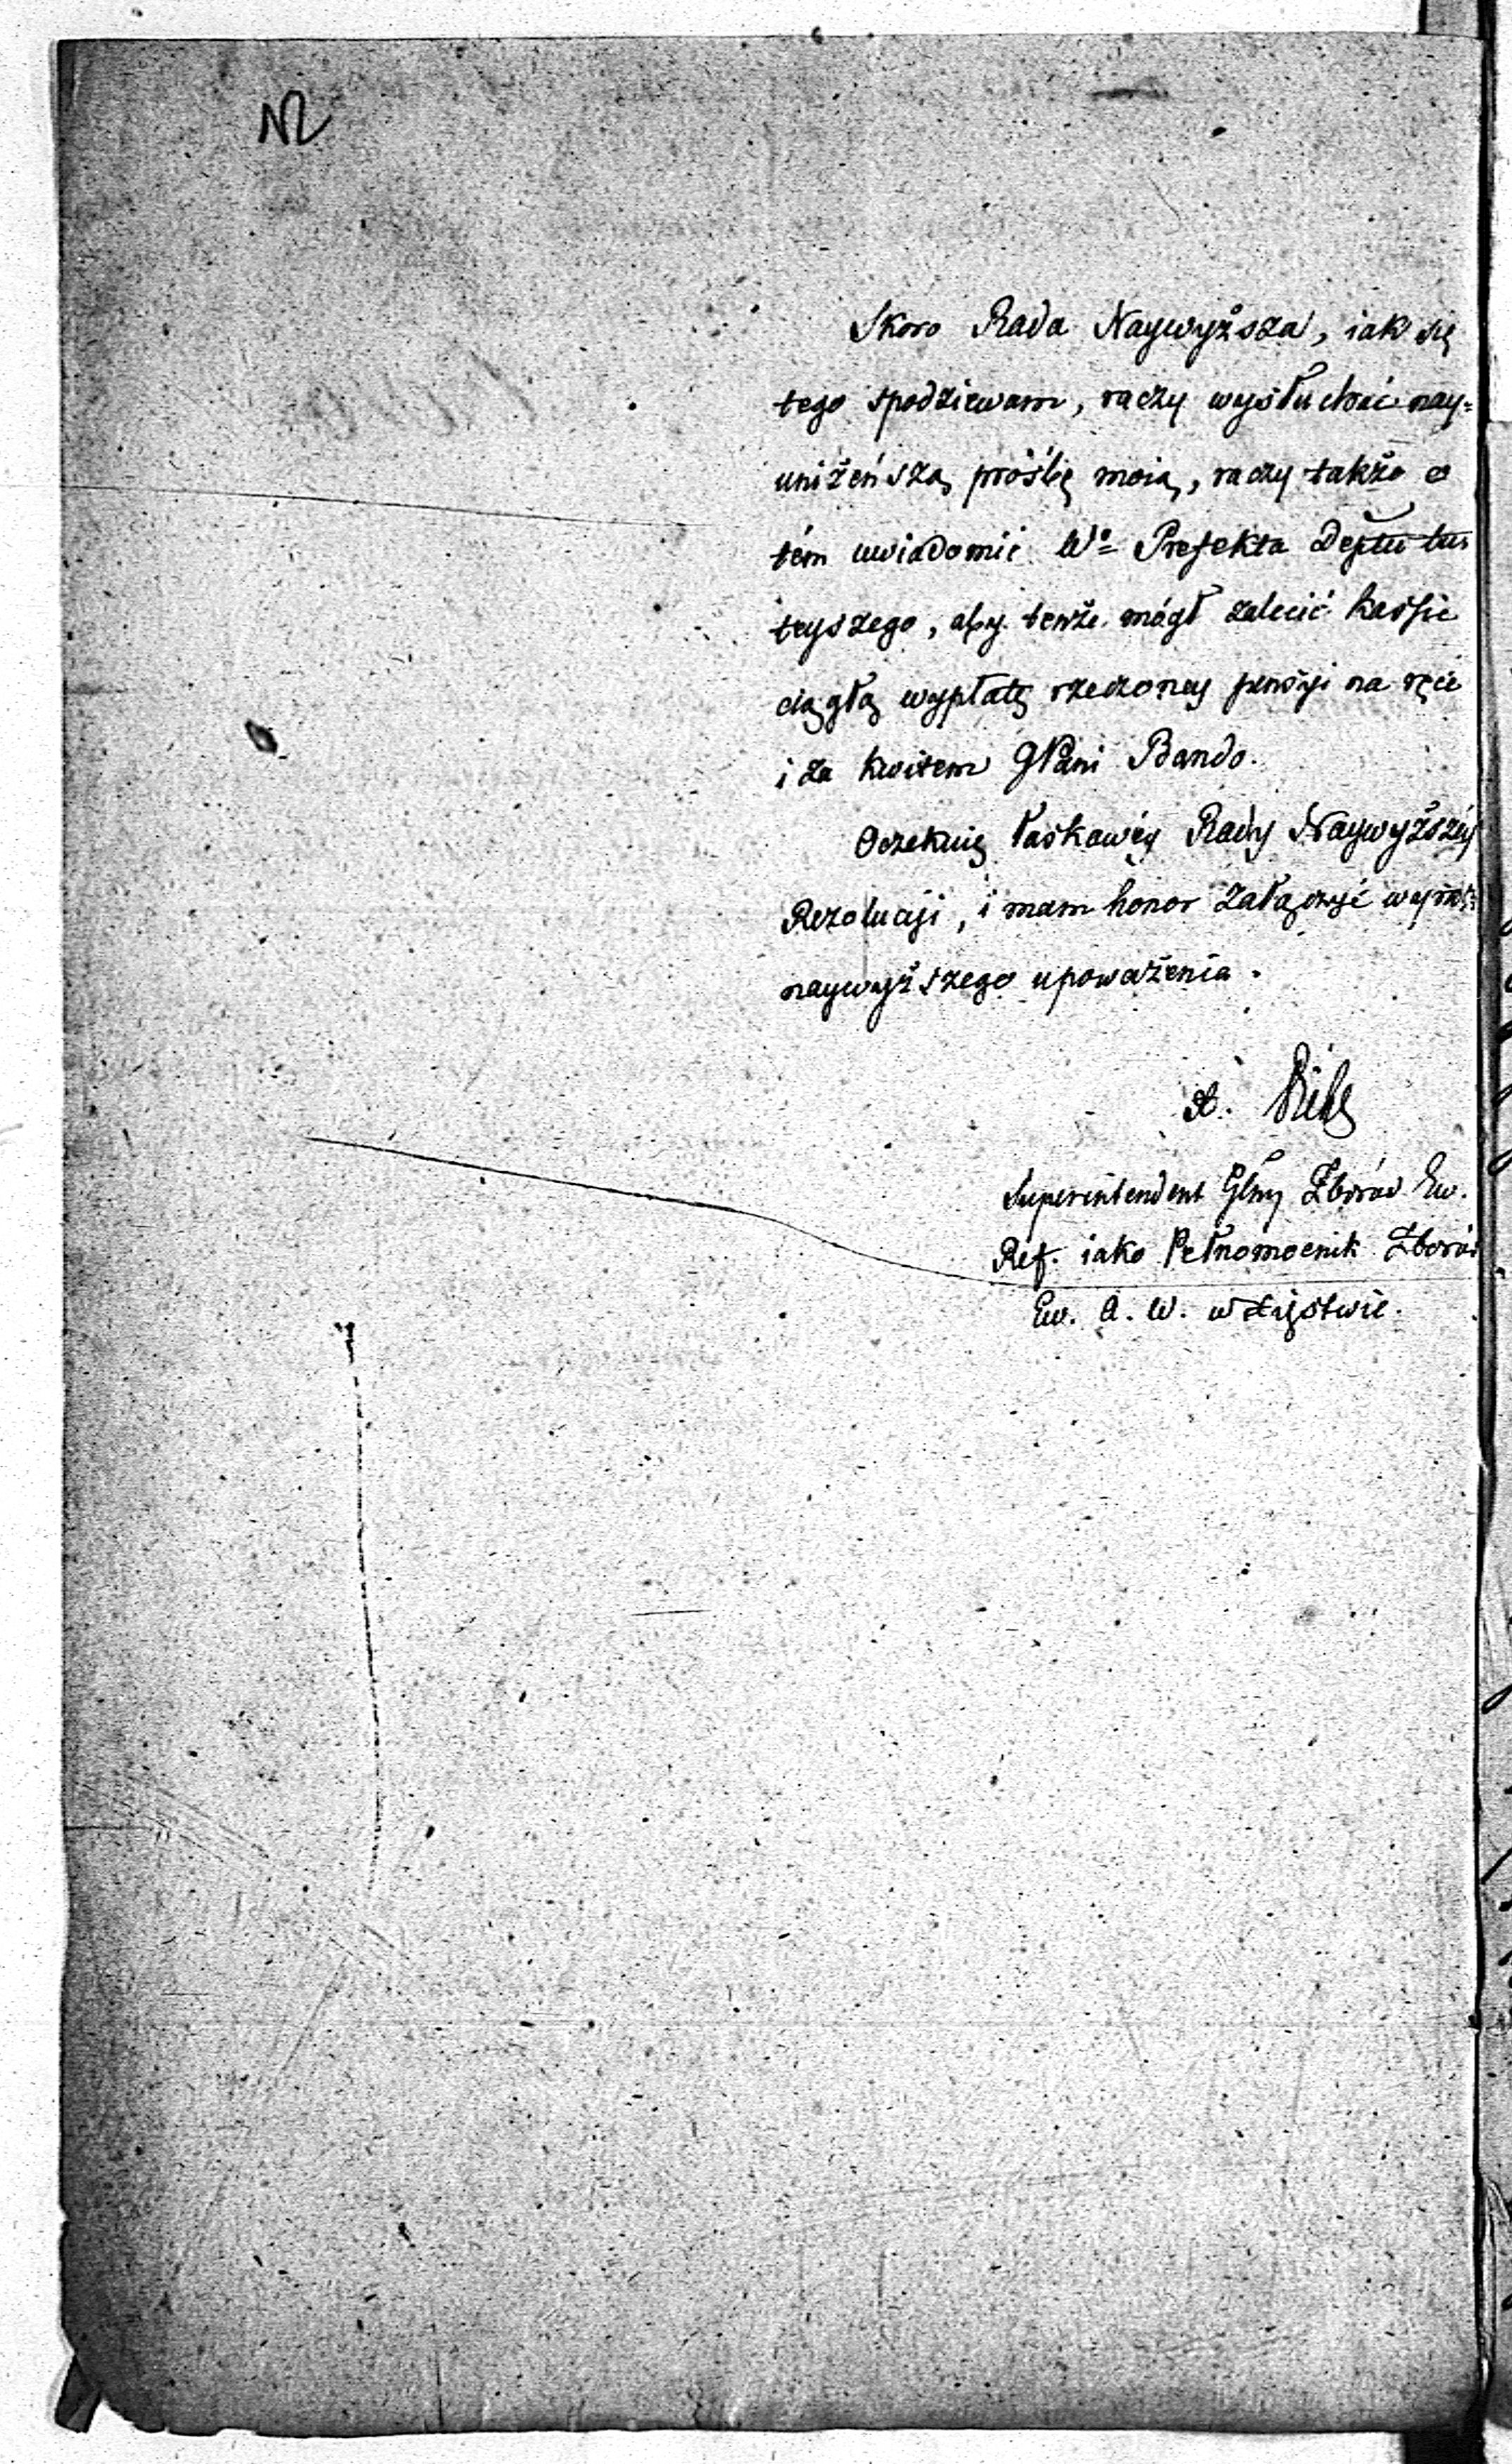 Skoro Rada Naywyższa, iak się
tego spodziewam, raczy wysłuchać nay=
uniżeńszą prośbę moią, raczy także o
tém uwiadomić Wo Prefekta Deptu tu=
teyszego, aby tenże mógł zalecić kassie
ciągłą wypłatę rzeczoney pensyi na ręce
i za kwitem JPani Bando.
Oczekuię łaskawéy Rady Naywyższéy
Rezolucyi, i mam honor załączyć wyraz
naywyższego upoważenia.
Diehl
Superintendent Glny Zborów Ew.
Ref. iako Pełnomocnik Zborów
Ew. A. W. w Xięstwie.